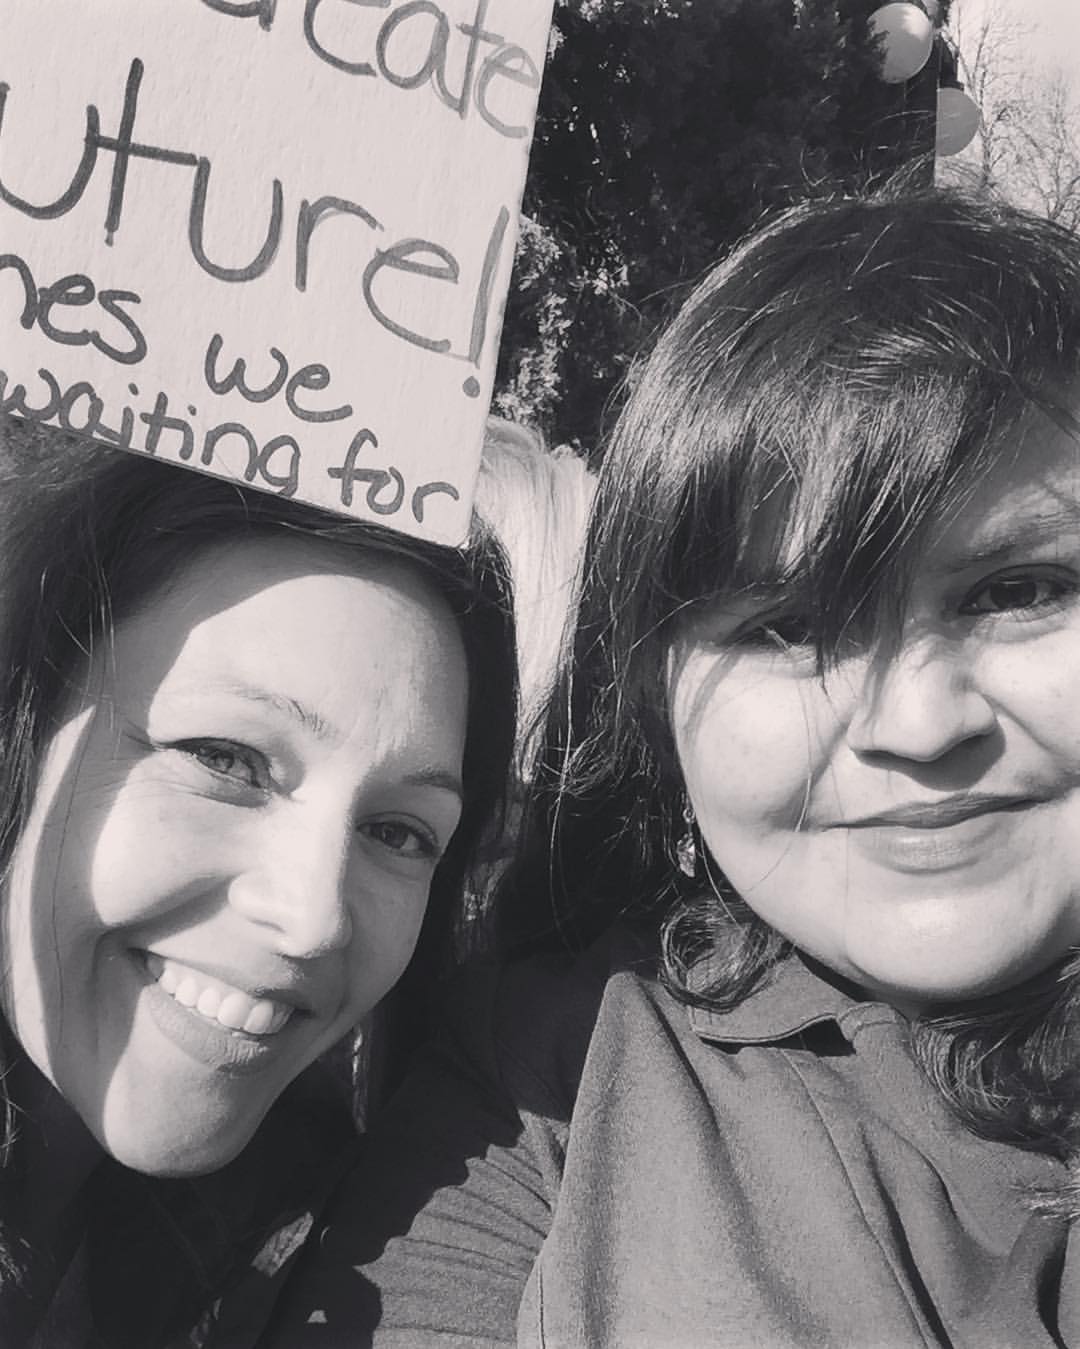 eate
uture!
nes we
waiting for